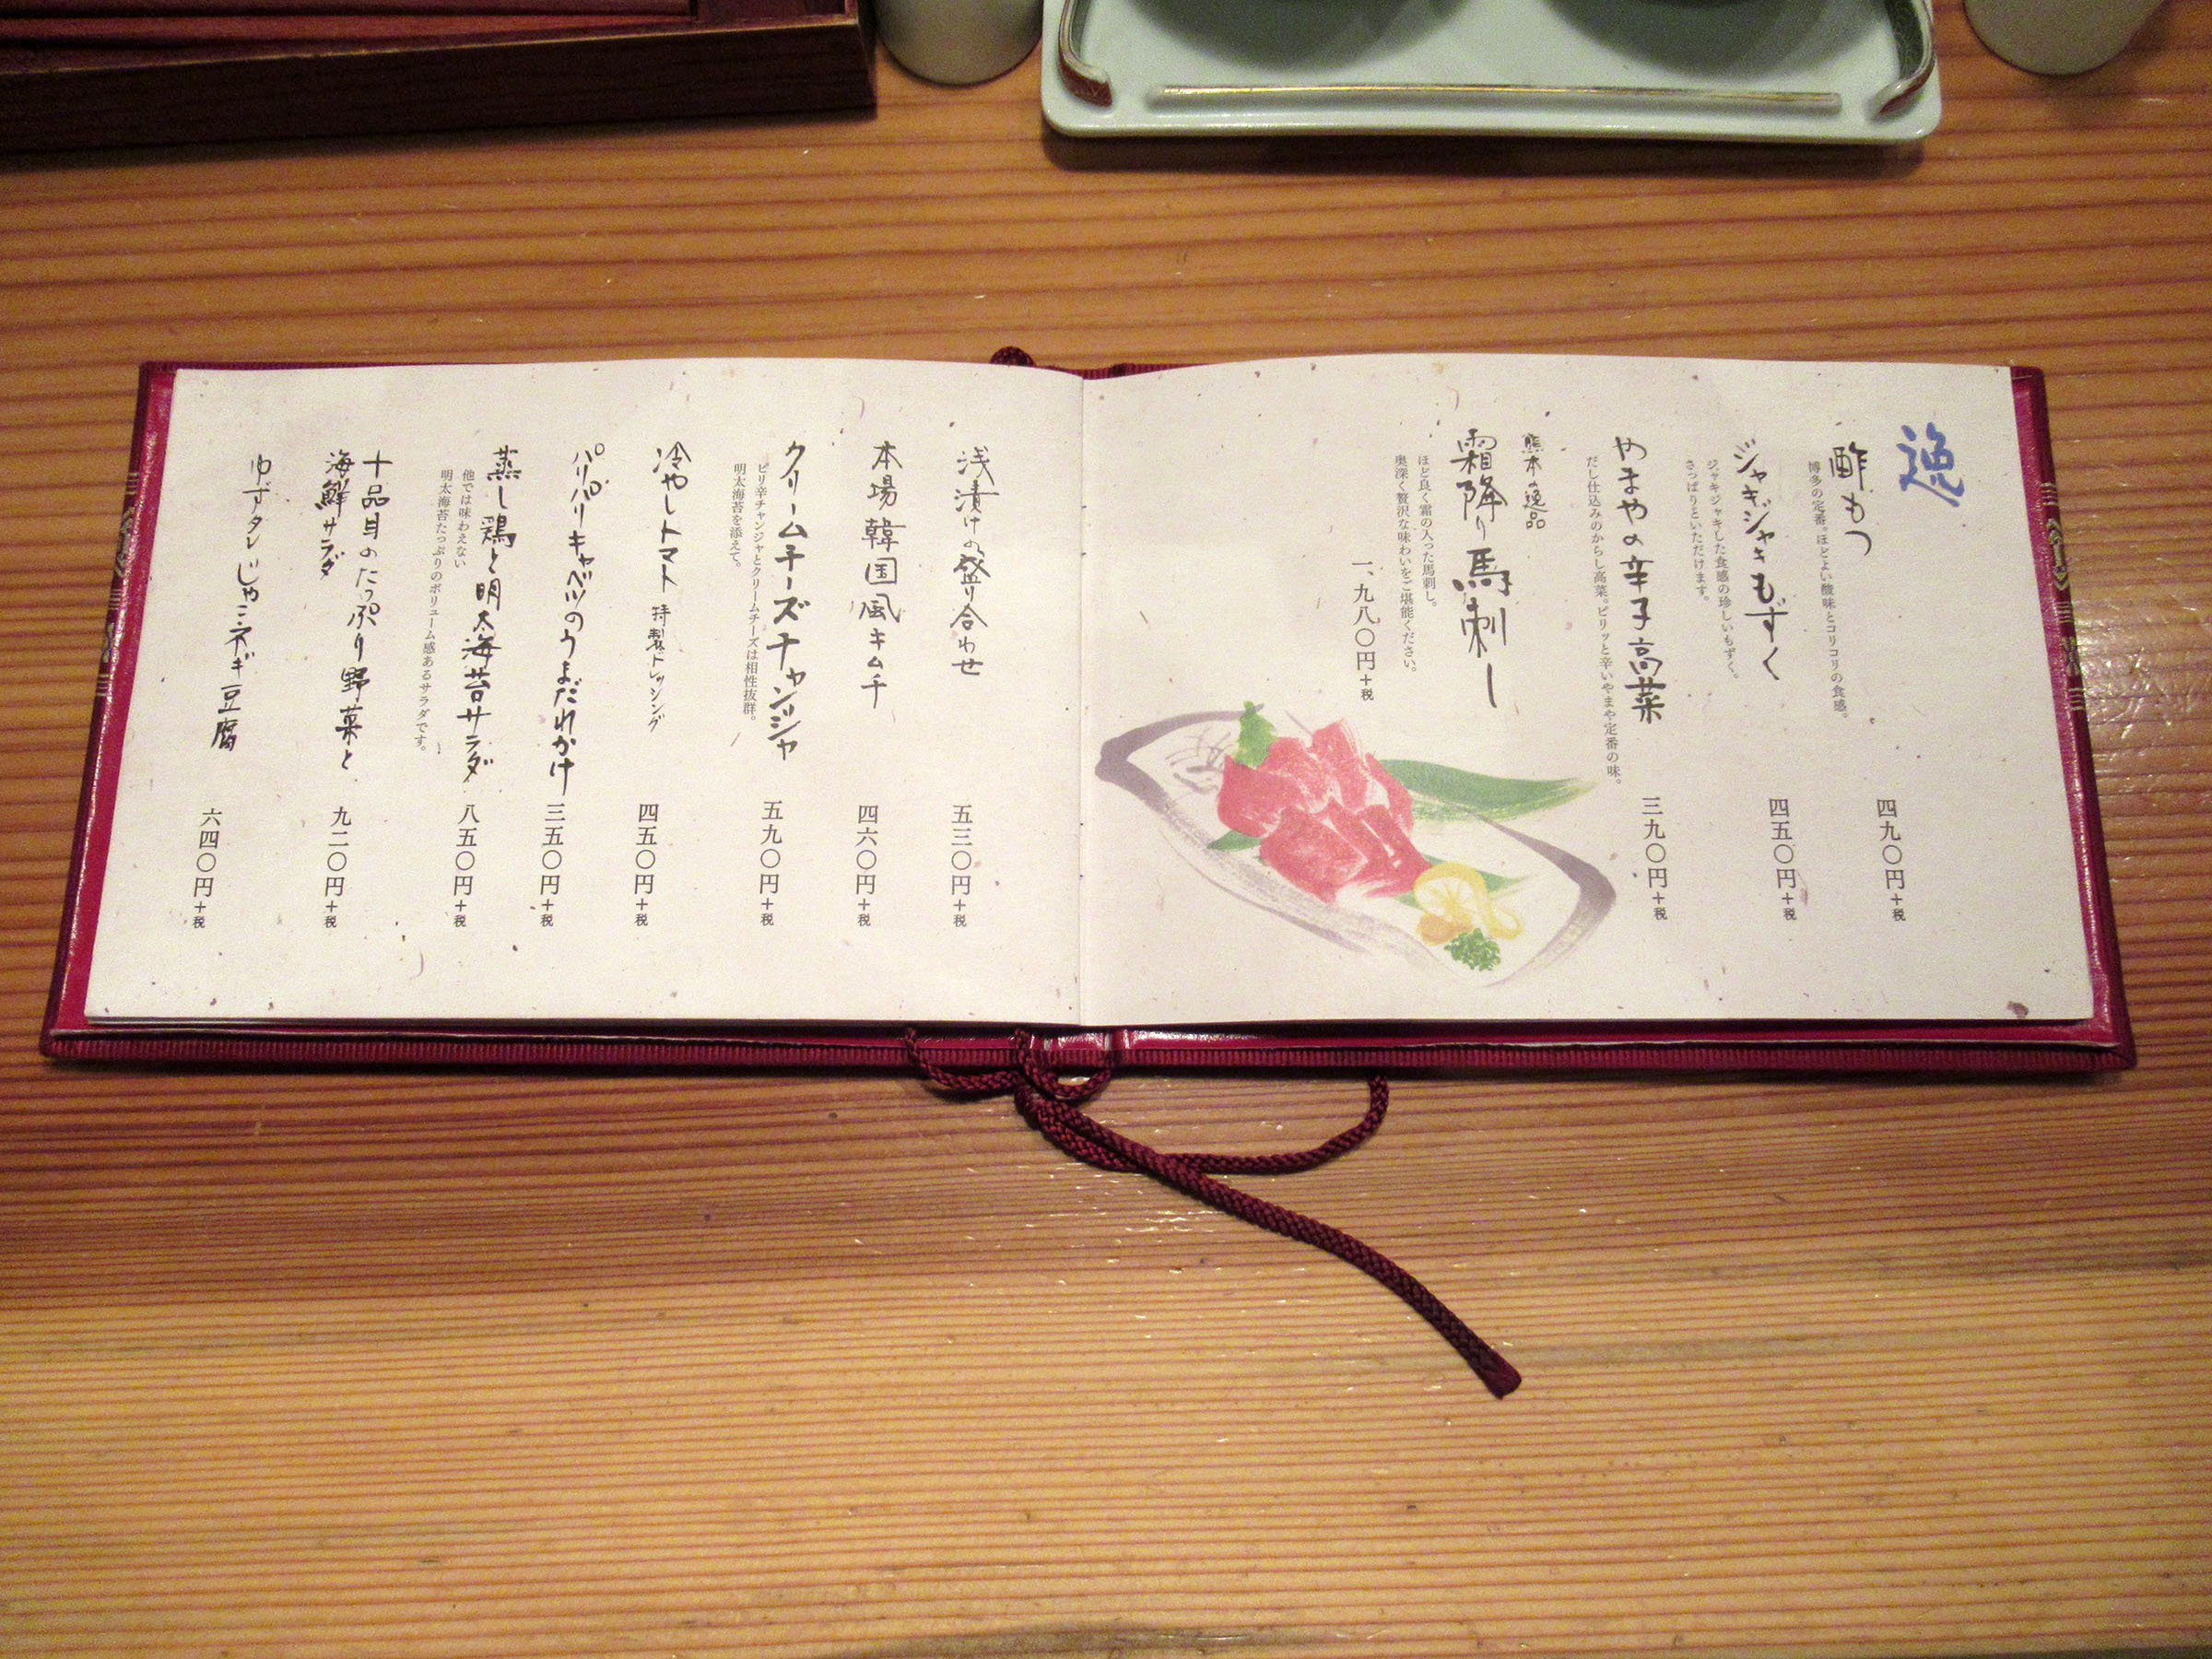 逸
酢もつ
博多の定番。ほどよい酸味とコリコリの食感。
四九〇円+税
ジャキジャキもずく
ジャキジャキした食感の珍しいもずく。
さっぱりといただけます。
四五〇円+税
やまやの辛子高菜
だし仕込みのからし高菜。ピリッと辛いやまや定番の味。
三九〇円+税
熊本の逸品
霜降り馬刺し
ほど良く霜の入った馬刺し。
奥深く贅沢な味わいをご堪能ください。
一、九八〇円+税
浅漬けの盛り合わせ
五三〇円+税
本場韓国風キムチ
四六〇円+税
クリームチーズチャンジャ
ピリ辛チャンジャとクリームチーズは相性抜群。
明太海苔を添えて。
五九〇円+税
冷やしトマト 特製ドレッシング
四五〇円+税
パリパリキャベツのうまだれかけ
三五〇円+税
蒸し鶏と明太海苔サラダ
他では味わえない
明太海苔たっぷりのボリューム感あるサラダです。
八五〇円+税
十品目のたっぷり野菜と
海鮮サラダ
九二〇円+税
ゆずタレじゃこネギ豆腐
六四〇円+税